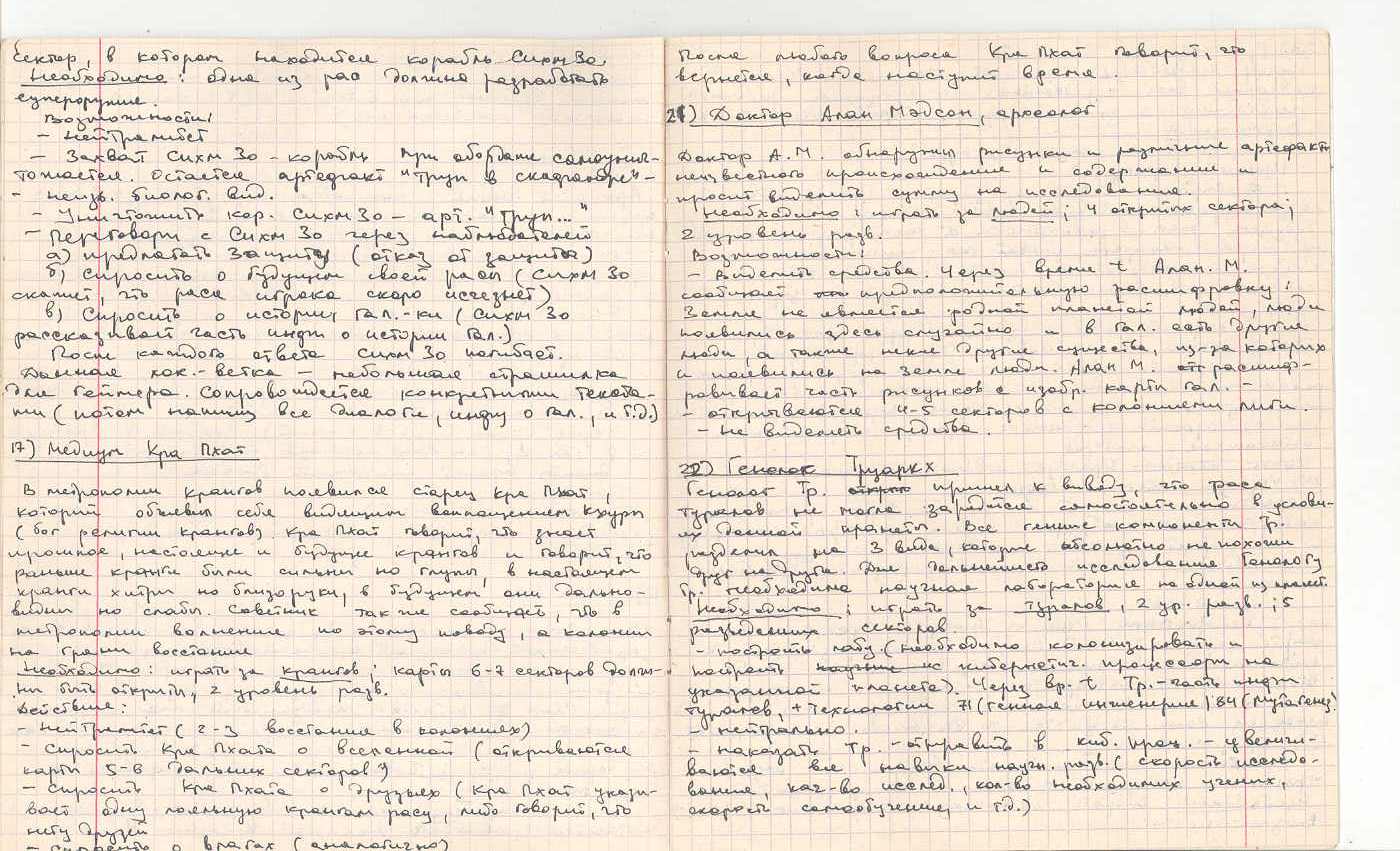 Сектор, в котором находится корабль Сихм Зо
Необходимо: одна из рас должна разработать
супероружие.
Возможности:
- нейтралитет
- Захват Сихм Зо - корабль при абордаже самоунич-
тожается. Остается артефакт "Труп в скафандре" -
- неизв. биолог. вид.
- Уничтожить кор. Сихм Зо - арт. "Труп..."
- Переговоры с Сихм Зо через наблюдателей
а) предлагать защиту (отказ от защиты)
б) спросить о будущем своей расы (Сихм Зо
скажет, что раса игрока скоро исчезнет)
в) Спросить о истории гал.-ки (Сихм Зо
рассказывает часть инфы о истории Гал.)
После каждого ответа Сихм Зо погибает.
Данная ветка - небольшая страшилка
для геймера. Сопровождается конкретными текста-
ми (потом напишу все диалоги, инфу о гал., и т.д.)
17) Медиум Кра Пхат
В метрополии крангов появился старец Кра Пхат,
который объявил себя видящим воплощением Кхуры
(бог религии крангов) Кра Пхат говорит, что знает
прошлое, настоящее и будущее крангов и говорит, что
раньше кранги были сильны но глупы, в настоящем
кранги хитры но близоруки, в будущем они дально-
видны но слабы. Советник так же сообщает, что в
метрополии волнение по этому поводу, а колонии
на грани восстания
Необходимо: играть за крангов; карты 6-7 секторов долж-
ны быть открыты, 2 уровень разв.
Действие:
- нейтралитет (2-3 восстания в колониях)
- спросить Кра Пхата о вселенной (открываются
карты 5-6 дальних секторов)
- спросить Кра Пхата о друзьях (Кра Пхат указы-
вает одну лояльную крангам расу, либо говорит, что
нету друзей
- спросить о врагах (аналогично)
После любого вопроса Кра Пхат говорит, что
вернется, когда наступит время.
21) Доктор Алан Мэдсон, археолог
Доктор А.М. обнаружил рисунки и различные артефакты
неизвестного происхождения и содержания и
просит выделить сумму на исследования.
Необходимо: играть за людей; 4 открытых сектора;
2 уровень разв.
Возможности:
- Выделить средства. Через время t Алан. М.
сообщает предположительную расшифровку:
Земля не является родной планетой людей, люди
появились здесь случайно и в гал. есть другие
люди, а также некие другие существа, из-за которых
и появились на Земле люди. Алан М. расшиф-
ровывает часть рисунков с изобр. карты гал. -
- открываются 4-5 секторов с колониями
- не выделять средства.
22) Генолог Труаркх
Генолог Тр. пришел к выводу, что раса
туралов не могла зародится самостоятельно в услови-
ях данной планеты. Все генные компоненты Тр.
разделил на 3 вида, которые абсолютно не похожи
друг на друга. Для дальнейшего исследования Генологу
Тр. необходима научная лаборатория на одной из планет.
Необходимо: играть за Туралов, 2 ур. разв.; 5
разведанных секторов.
- построить лабу. (необходимо колонизировать и
построить кибернетич. процессор на
указанной планете). Через вр. t Тр. - часть инфы
туралов, + технологии 71 (генная инженерия) 84 (мутагенез)
- нейтрально.
- наказать Тр. - отправить в киб. проц. - увеличи-
ваются все навыки научн. разв. (скорость исследо-
вания, кол-во исслед., кол-во необходимых ученых,
скорость самообучения, и т.д.)